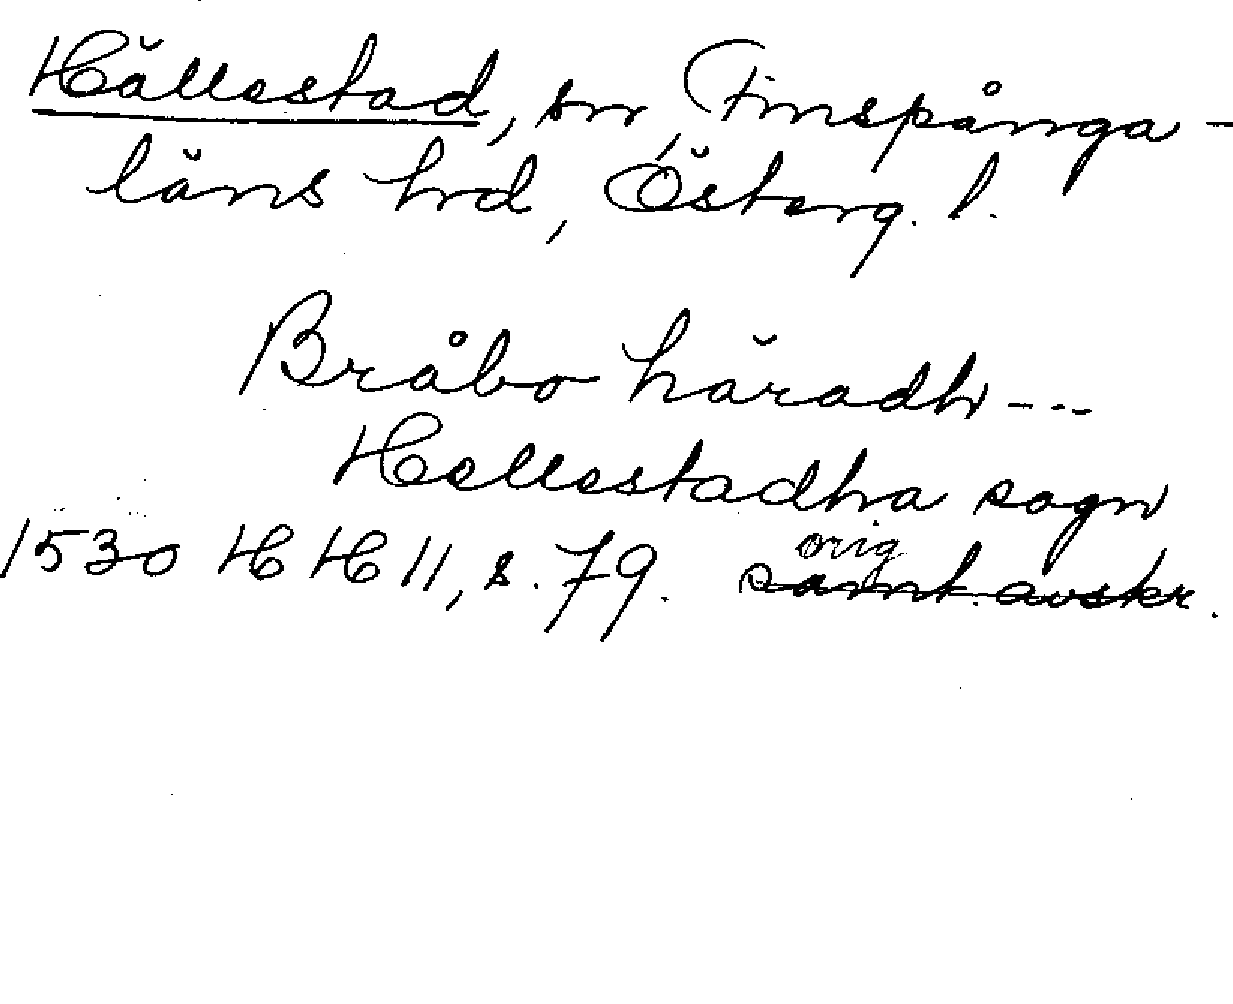 Hällestad, sn, Finspånga-
läns hrd, Österg. l.
Bråbo häradh ---
Hellestadha sogn
orig
1530 HH 11, s. 79. samt. avskr.